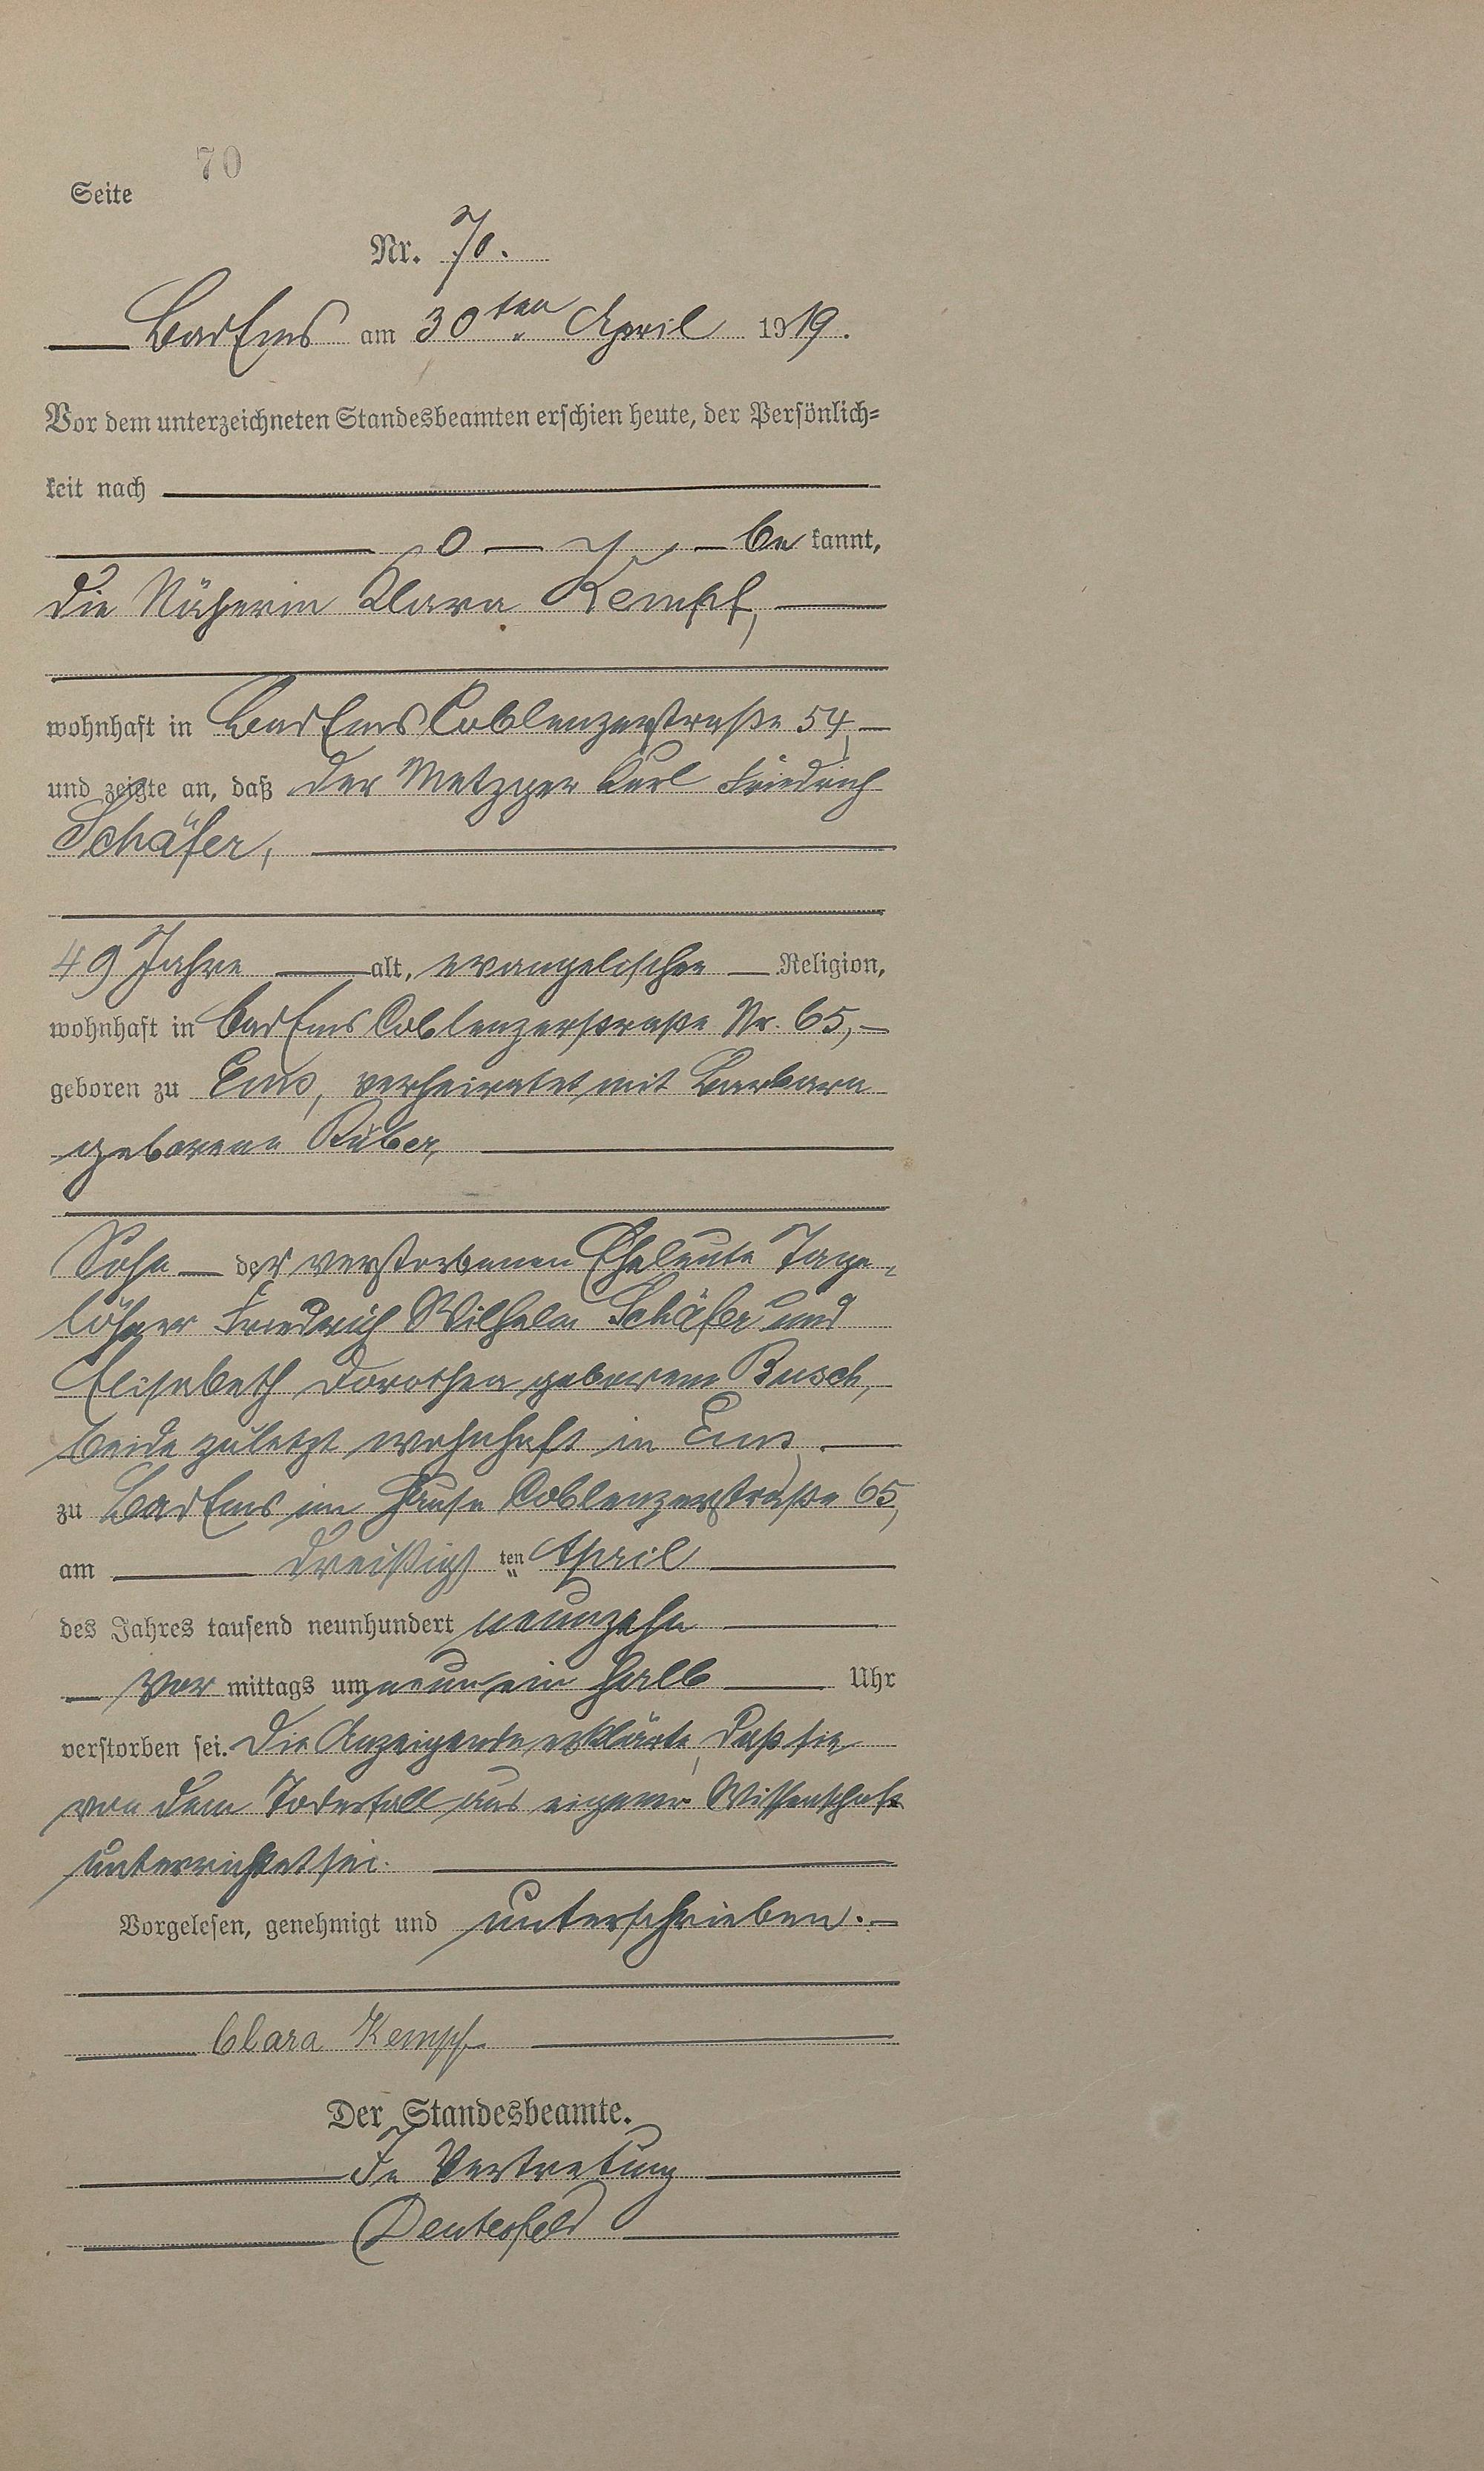 70
Seite
Nr. 70.
Bad Ems am 30ten April 1919.
Vor dem unterzeichneten Standesbeamten erschien heute, der Persönlich=
keit nach
be kannt,
die Näherin Klara Kempf,
wohnhaft in Bad Ems Coblenzerstraße 54,
und zeigte an, daß der Metzger Karl Friedrich
Schäfer,
49 Jahre alt, evangelischer Religion,
wohnhaft in Bad Ems Coblenzerstraße Nr. 65,
geboren zu Ems, verheiratet mit Barbara
geborene Rüber,
Sohn der verstorbenen Eheleute Tage-
löhner Friedrich Wilhelm Schäfer und
Elisabeth Dorothea geborene Busch,
beide zuletzt wohnhaft in Ems,
zu Bad Ems im Hause Coblenzerstraße 65,
am dreißigsten April
des Jahres tausend neunhundert neunzehn
Vor mittags um neun ein halb Uhr
verstorben sei. Die Anzeigende erklärte, daß sie
von dem Todesfall aus eigener Wissenschaft
unterrichtet sei.
Vorgelesen, genehmigt und unterschrieben.
Clara Kempf
Der Standesbeamte.
In Vertretung